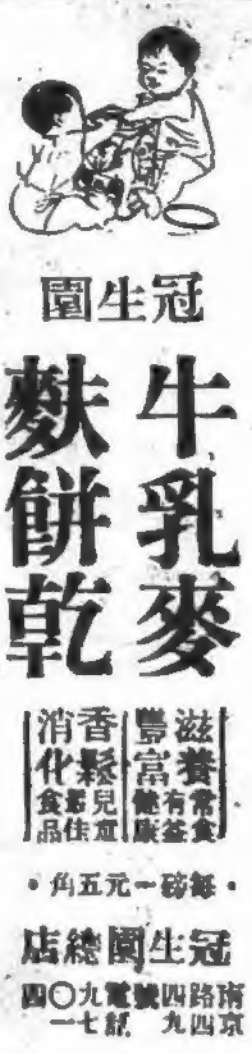 冠生園
牛乳麥
麩餅乾
滋養
豐富
常食
有益
健康
香鬆
消化
兒童
最佳
食品
・每磅一元五角・
冠生園總店
南京路四四九號
電話九〇四七一